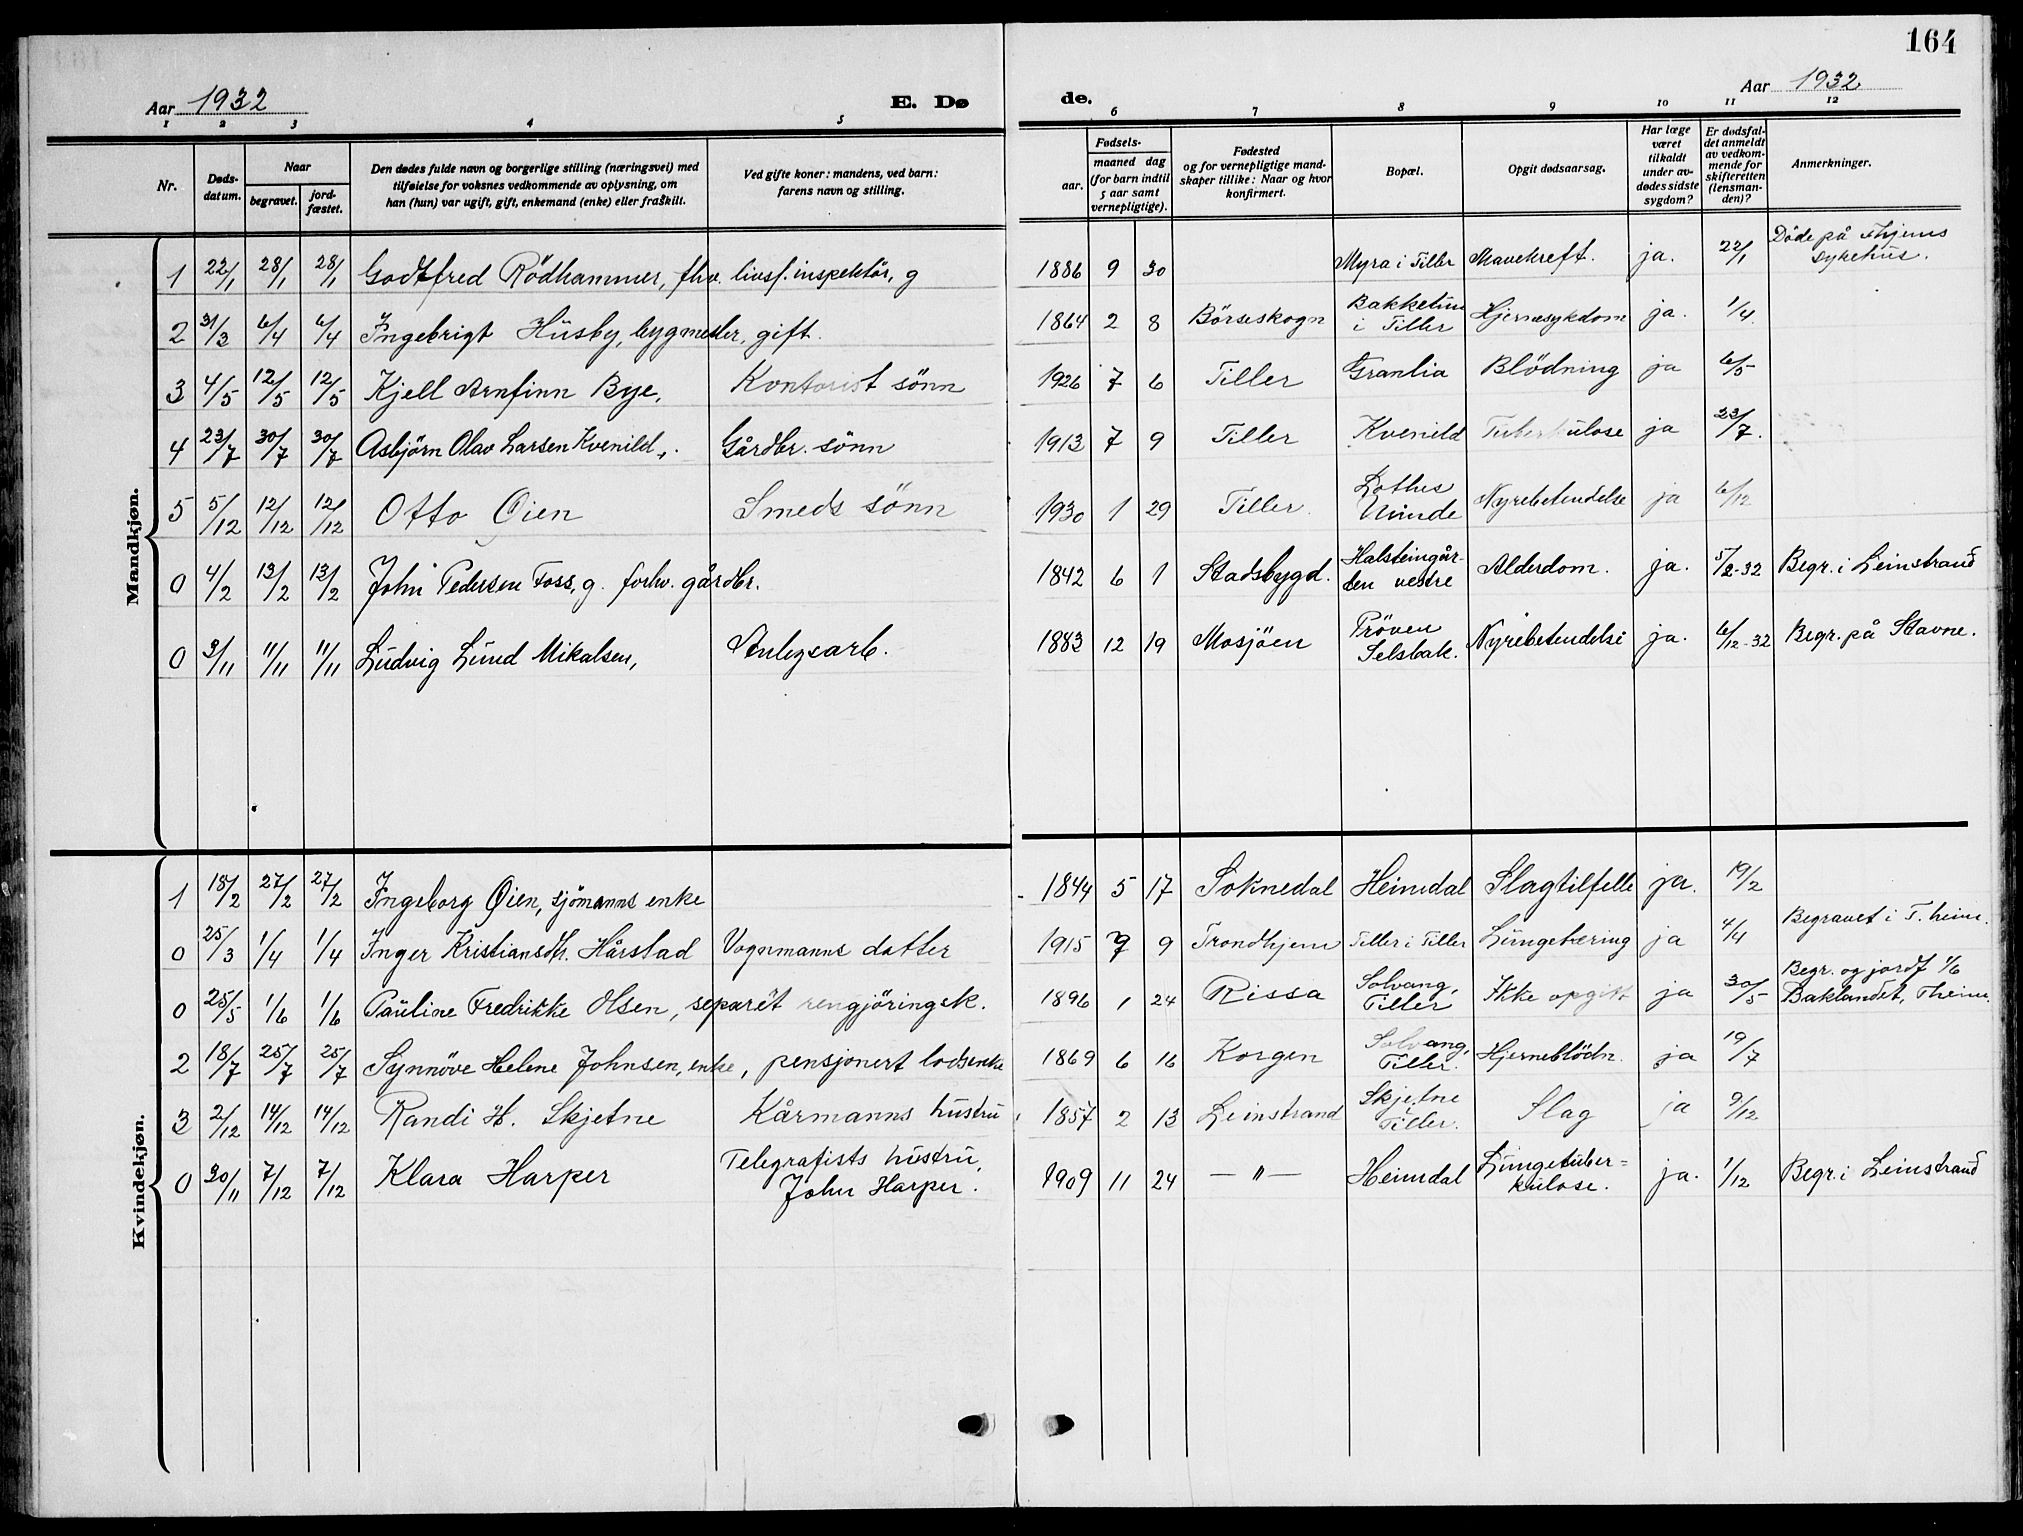 164
Aar 1932 E. Dø de. Aar 1932
1 2 3 4 5 6 7 8 9 10 11 12
Nr. Døds-datum. Naar begravet. jord-fæstet. Den dødes fulde navn og borgerlige stilling (næringsvei) med tilføielse for voksnes vedkommende av oplysning, om han (hun) var ugift, gift, enkemand (enke) eller fraskilt. Ved gifte koner: mandens, ved barn: farens navn og stilling. Fødsels- aar. maaned dag (for barn indtil 5 aar samt vernepligtige). Fødested og for vernepligtige mand-skaper tillike: Naar og hvor konfirmert. Bopæl. Opgit dødsaarsag. Har læge været tilkaldt under av-dødes sidste sygdom? Er dødsfal-det anmeldt av vedkom-mende for skifteretten (lensman-den)? Anmerkninger.
Mandkjøn.
1 22/1 28/1 28/1 Godtfred Rödhammer, fhv. livsf. inspektör, g 1886 9 30 Myra i Tiller Mavekreft. ja. 22/1 Döde på Thjems sykehus.
2 31/3 6/4 6/4 Ingebrigt Husby, bygmester, gift. 1864 2 8 Börseskogn Bakketun i Tiller Hjernesykdom ja. 1/4
3 4/5 12/5 12/5 Kjell Arnfinn Bye, Kontorist sönn 1926 7 6 Tiller Granlia Blödning ja 6/5
4 23/7 30/7 30/7 Asbjörn Olav Larsen Kvenild, Gårdbr. sönn 1913 7 9 Tiller Kvenild Tuberkulose ja 23/7.
5 5/12 12/12 12/12 Otto Øien Smeds sönn 1930 1 29 Tiller. Nyrebetendelse ja 6/12
0 4/2 13/2 13/2 John Pedersen Foss, g. forhv. gårdbr. 1842 6 1 Stadsbygd. Halsteingår-den vestre Alderdom. ja. 5/2-32 Begr. i Leinstrand
0 3/11 11/11 11/11 Ludvig Lund Mikalsen, Anlegsarb. 1883 12 19 Mosjöen Pröven Selsbak. Nyrebetendelse ja. 6/12-32 Begr. på Stavne.
Kvindekjøn.
1 18/2 27/2 27/2 Ingeborg Øien, sjömanns enke 1844 5 17 Soknedal Heimdal Slagtilfelle ja. 19/2
0 25/3 1/4 1/4 Inger Kristiansdtr. Hårstad Vognmanns datter 1915 7 9 Trondhjem Tiller i Tiller Lungetæring ja 4/4 Begravet i T.heim.
0 25/5 1/6 1/6 Pauline Fredrikke Olsen, separêt rengjöringsk. 1896 1 24 Rissa Solvang, Tiller Ikke opgitt ja 30/5 Begr. og jordf 1/6 Baklandet, Theim.
2 18/7 25/7 25/7 Synnöve Helene Johnsen, enke, pensjonert lodsenke 1869 6 16 Korgen Solvang, Tiller. Hjerneblödn. ja 19/7
3 2/12 14/12 14/12 Randi H. Skjetne Kårmanns hustru 1857 2 13 Leinstrand Skjetne i Tiller. Slag ja 9/12
0 30/11 7/12 7/12 Klara Harper Telegrafists hustru, John Harper. 1909 11 24 — " — Heimdal Lungetuber=kulose. ja. 1/12 Begr. i Leinstrand